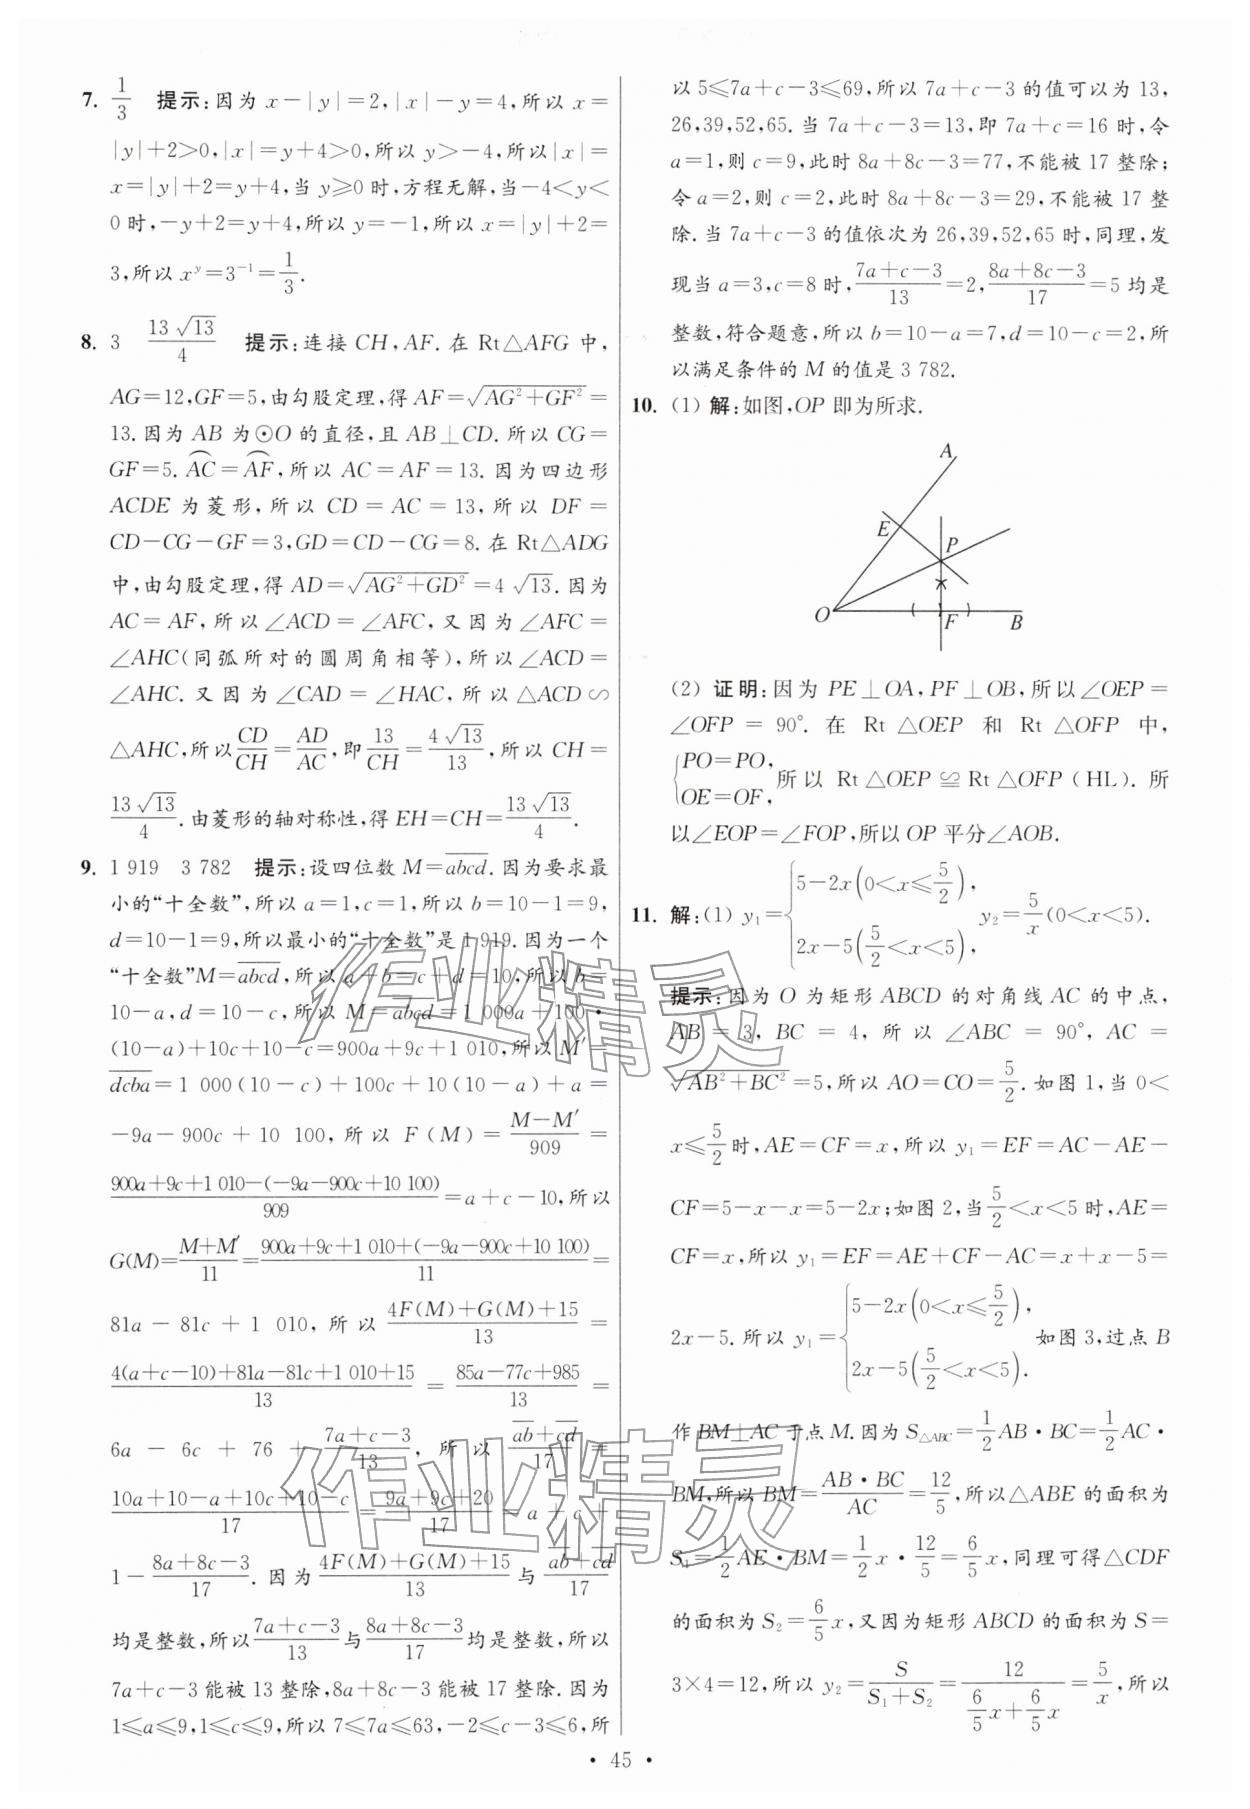 7. 1/3 提示:因为 x-|y|=2,|x|-y=4,所以 x=
|y|+2>0,|x|=y+4>0,所以 y>-4,所以|x|=
x=|y|+2=y+4,当 y≥0 时,方程无解,当-4<y<
0 时,-y+2=y+4,所以 y=-1,所以 x=|y|+2=
3,所以 x^y=3⁻¹=1/3.
8. 3 13√13/4 提示:连接 CH,AF. 在 Rt△AFG 中,
AG=12,GF=5,由勾股定理,得 AF=√(AG²+GF²)=
13. 因为 AB 为⊙O 的直径,且 AB⊥CD. 所以 CG=
GF=5. A͡C=A͡F,所以 AC=AF=13. 因为四边形
ACDE 为菱形,所以 CD=AC=13,所以 DF=
CD-CG-GF=3,GD=CD-CG=8. 在 Rt△ADG
中,由勾股定理,得 AD=√(AG²+GD²)=4√13. 因为
AC=AF,所以∠ACD=∠AFC,又因为∠AFC=
∠AHC(同弧所对的圆周角相等),所以∠ACD=
∠AHC. 又因为∠CAD=∠HAC,所以△ACD∽
△AHC,所以CD/CH=AD/AC,即13/CH=4√13/13,所以 CH=
13√13/4. 由菱形的轴对称性,得 EH=CH=13√13/4.
9. 1 919 3 782 提示:设四位数 M=a̅b̅c̅d̅. 因为要求最
小的“十全数”,所以 a=1,c=1,所以 b=10-1=9,
d=10-1=9,所以最小的“十全数”是 1 919. 因为一个
“十全数”M=a̅b̅c̅d̅,所以 a+b=c+d=10,所以 b=
10-a,d=10-c,所以 M=a̅b̅c̅d̅=1 000a+100·
(10-a)+10c+10-c=900a+9c+1 010,所以 M′
d̅c̅b̅a̅=1 000(10-c)+100c+10(10-a)+a=
-9a-900c+10 100,所以 F(M)=(M-M′)/909=
(900a+9c+1 010-(-9a-900c+10 100))/909=a+c-10,所以
G(M)=(M+M′)/11=(900a+9c+1 010+(-9a-900c+10 100))/11=
81a-81c+1 010,所以 (4F(M)+G(M)+15)/13=
(4(a+c-10)+81a-81c+1 010+15)/13=(85a-77c+985)/13=
6a-6c+76+(7a+c-3)/13,所以 (a̅b̅+c̅d̅)/17=
(10a+10-a+10c+10-c)/17=(9a+9c+20)/17=a+c+
1-(8a+8c-3)/17. 因为(4F(M)+G(M)+15)/13与(a̅b̅+c̅d̅)/17
均是整数,所以(7a+c-3)/13与(8a+8c-3)/17均是整数,所以
7a+c-3 能被 13 整除,8a+8c-3 能被 17 整除. 因为
1≤a≤9,1≤c≤9,所以 7≤7a≤63,-2≤c-3≤6,所
以 5≤7a+c-3≤69,所以 7a+c-3 的值可以为 13,
26,39,52,65. 当 7a+c-3=13,即 7a+c=16 时,令
a=1,则 c=9,此时 8a+8c-3=77,不能被 17 整除;
令 a=2,则 c=2,此时 8a+8c-3=29,不能被 17 整
除. 当 7a+c-3 的值依次为 26,39,52,65 时,同理,发
现当 a=3,c=8 时,(7a+c-3)/13=2,(8a+8c-3)/17=5 均是
整数,符合题意,所以 b=10-a=7,d=10-c=2,所
以满足条件的 M 的值是 3 782.
10. (1) 解:如图,OP 即为所求.
A
E
P
O
F
B
(2) 证明:因为 PE⊥OA,PF⊥OB,所以∠OEP=
∠OFP=90°. 在 Rt△OEP 和 Rt△OFP 中,
{PO=PO,
OE=OF, 所以 Rt△OEP≌Rt△OFP(HL). 所
以∠EOP=∠FOP,所以 OP 平分∠AOB.
11. 解:(1) y₁={5-2x(0<x≤5/2), 2x-5(5/2<x<5), y₂=5/x(0<x<5).
提示:因为 O 为矩形 ABCD 的对角线 AC 的中点,
AB=3,BC=4,所以∠ABC=90°,AC=
√(AB²+BC²)=5,所以 AO=CO=5/2. 如图 1,当 0<
x≤5/2时,AE=CF=x,所以 y₁=EF=AC-AE-
CF=5-x-x=5-2x;如图 2,当5/2<x<5 时,AE=
CF=x,所以 y₁=EF=AE+CF-AC=x+x-5=
2x-5. 所以 y₁={5-2x(0<x≤5/2), 2x-5(5/2<x<5). 如图 3,过点 B
作 BM⊥AC 于点 M. 因为 S△ABC=1/2AB·BC=1/2AC·
BM,所以 BM=AB·BC/AC=12/5,所以△ABE 的面积为
S₁=1/2AE·BM=1/2x·12/5=6/5x,同理可得△CDF
的面积为 S₂=6/5x,又因为矩形 ABCD 的面积为 S=
3×4=12,所以 y₂=S/(S₁+S₂)=12/(6/5x+6/5x)=5/x,所以
• 45 •
作业精灵
作业精灵